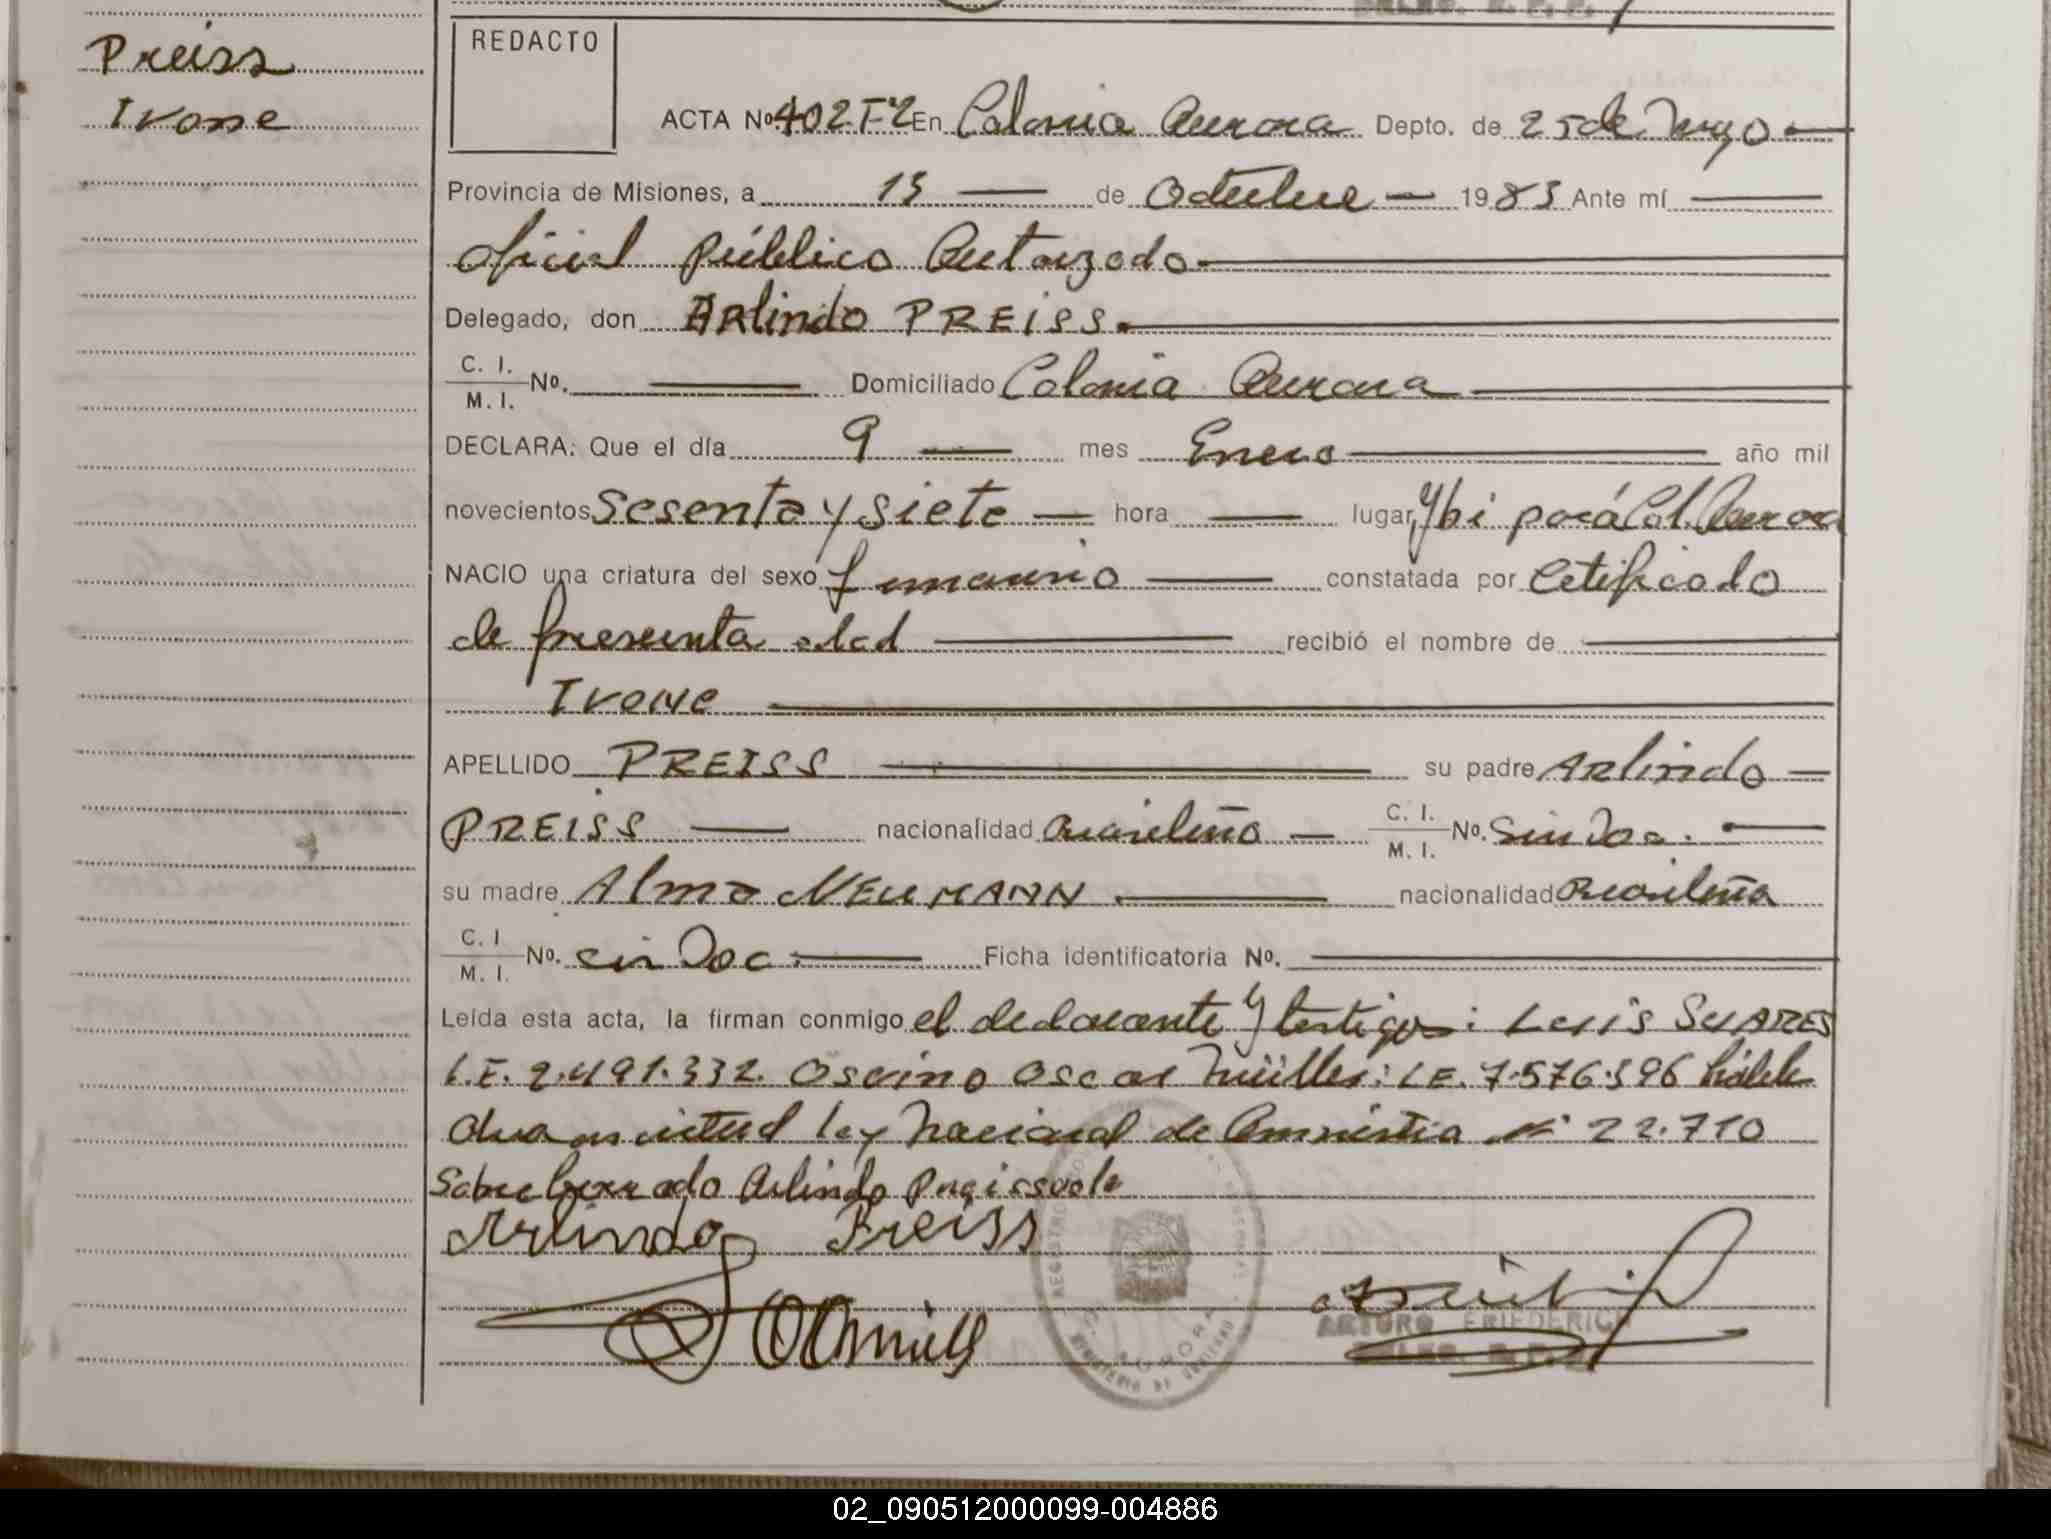 Preiss
Ivone
REDACTO
ACTA Nº 402 T-2 En Colonia Aurora Depto. de 25 de Mayo
Provincia de Misiones, a 13 de Octubre 1983 Ante mí
Oficial Público Autorizado
Delegado, don Arlindo PREISS.
C. I.
M. I. Nº. Domiciliado Colonia Aurora
DECLARA: Que el día 9 mes Enero año mil
novecientos Sesenta y siete hora lugar Ybi pará Col. Aurora
NACIO una criatura del sexo femenino constatada por Cetificado
de presunta edad recibió el nombre de
Ivone
APELLIDO PREISS su padre Arlindo
PREISS nacionalidad Brasileño C. I. M. I. Nº. Sin Doc.
su madre Alma NEUMANN nacionalidad Brasileña
C. I M. I. Nº. sin Doc. Ficha identificatoria Nº.
Leída esta acta, la firman conmigo el declarante y testigos: Luis SUARES
L.E. 2.491.332. Osvino Oscar Müller: LE. 7.576.596
en virtud ley Nacional de Amnistia Nº 22.710
Sobre borrado Arlindo Preiss vale
Arlindo Preiss
ARTURO FRIEDERICH
02_090512000099-004886